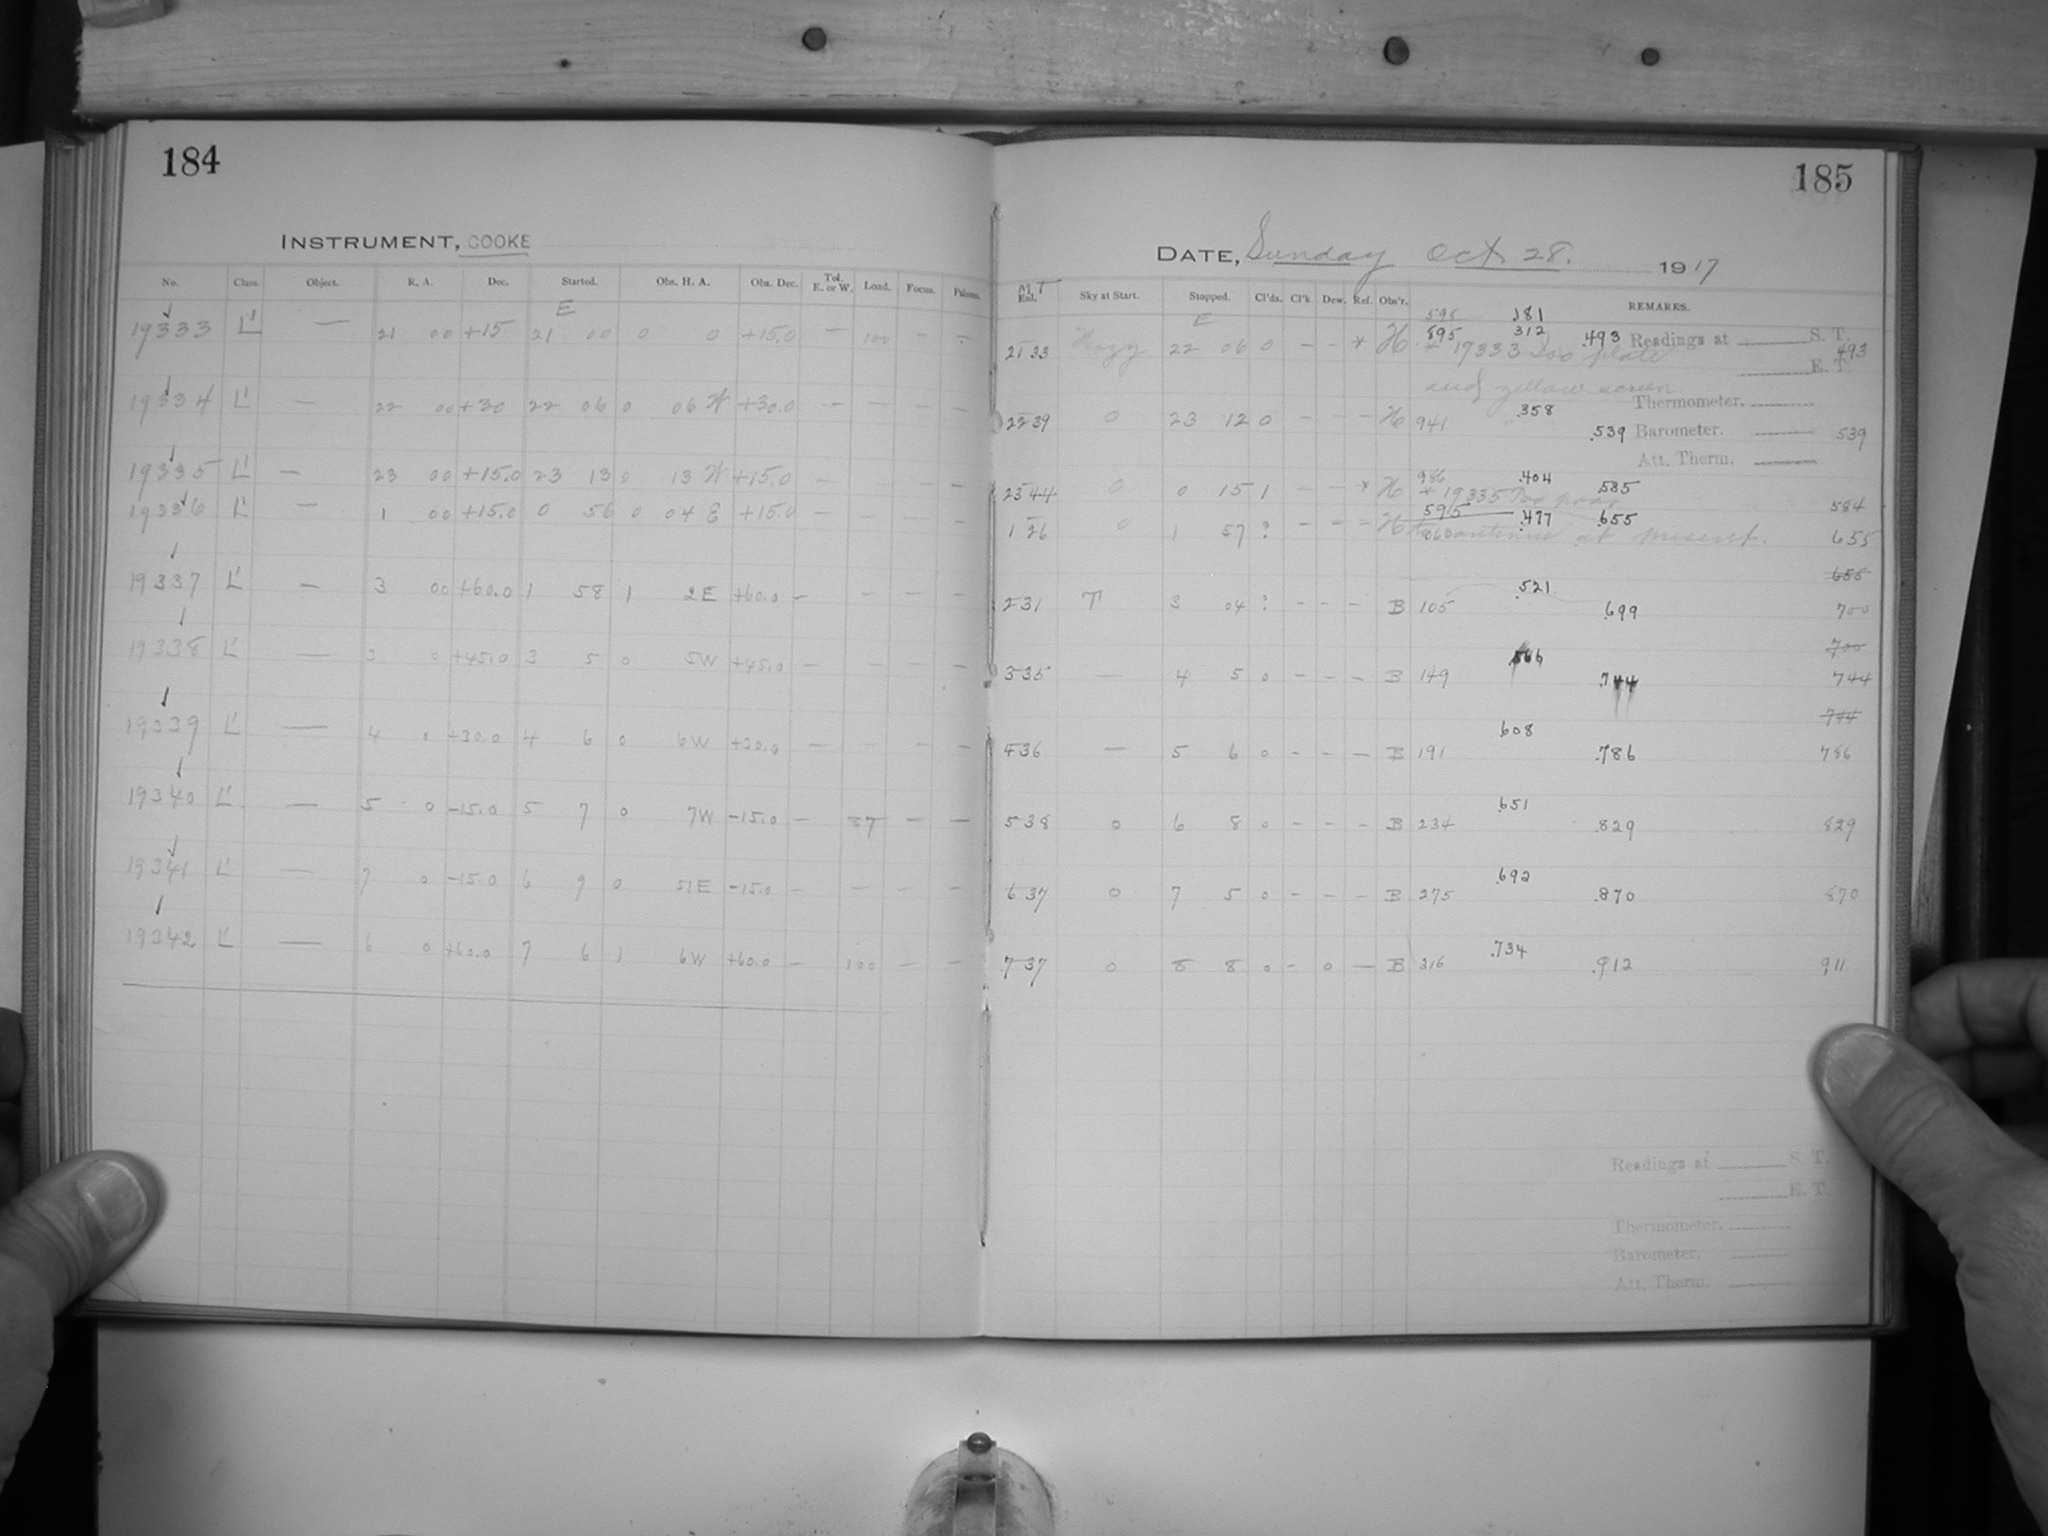 184
INSTRUMENT, COOKE
No. Class. Object. R. A. Dec. Started. Obs. H. A. Obs. Dec. Tel. E. or W. Load. Focus.
E
19333 L' — 21 00 +15 21 00 0 0 +15.0 — 100 —
19334 L' — 22 00 +30 22 06 0 06 W +30.0 — — — —
19335 L' — 23 00 +15.0 23 13 0 13 W +15.0 — — — —
19336 L' — 1 00 +15.0 0 56 0 04 E +15.0 — — — —
19337 L' — 3 00 +60.0 1 58 1 2 E +60.0 — — — —
19338 L' — 3 0 +45.0 3 5 0 5 W +45.0 — — — —
19339 L' — 4 0 +30.0 4 6 0 6 W +30.0 — — — —
19340 L' — 5 0 -15.0 5 7 0 7 W -15.0 — 87 — —
19341 L' — 7 0 -15.0 6 9 0 51 E -15.0 — — — —
19342 L' — 6 0 +60.0 7 6 1 6 W +60.0 — 100 — —
185
DATE, Sunday Oct 28. 1917
Sky at Start. Stopped. Cl'ds. Cl'k Dew. Ref. Obs'r. REMARKS.
E
595 .181
21 33 Hazy 22 06 0 - - * H 595 312 .493 Readings at S. T. 493
* 19333 Iso plate
E. T.
and yellow screen
Thermometer.
22 39 0 23 12 0 - - - H 941 .358 .539 Barometer. 539
Att. Therm.
23 44 0 0 15 1 - - * H 986 .404 .585 584
* 19335 Too poor
1 26 0 1 57 ? - - - H 595 .477 .655 655
to continue at present.
655
2 31 T 3 04 ? - - - B 105 .521 .699 700
700
3 35 — 4 5 0 - - - B 149 .566 .744 744
744
4 36 — 5 6 0 - - — B 191 .608 .786 786
5 38 0 6 8 0 - - - B 234 .651 .829 829
6 37 0 7 5 0 - - - B 275 .692 .870 870
7 37 0 8 8 0 - 0 — B 316 .734 .912 911
Readings at S. T.
E. T.
Thermometer.
Barometer.
Att. Therm.